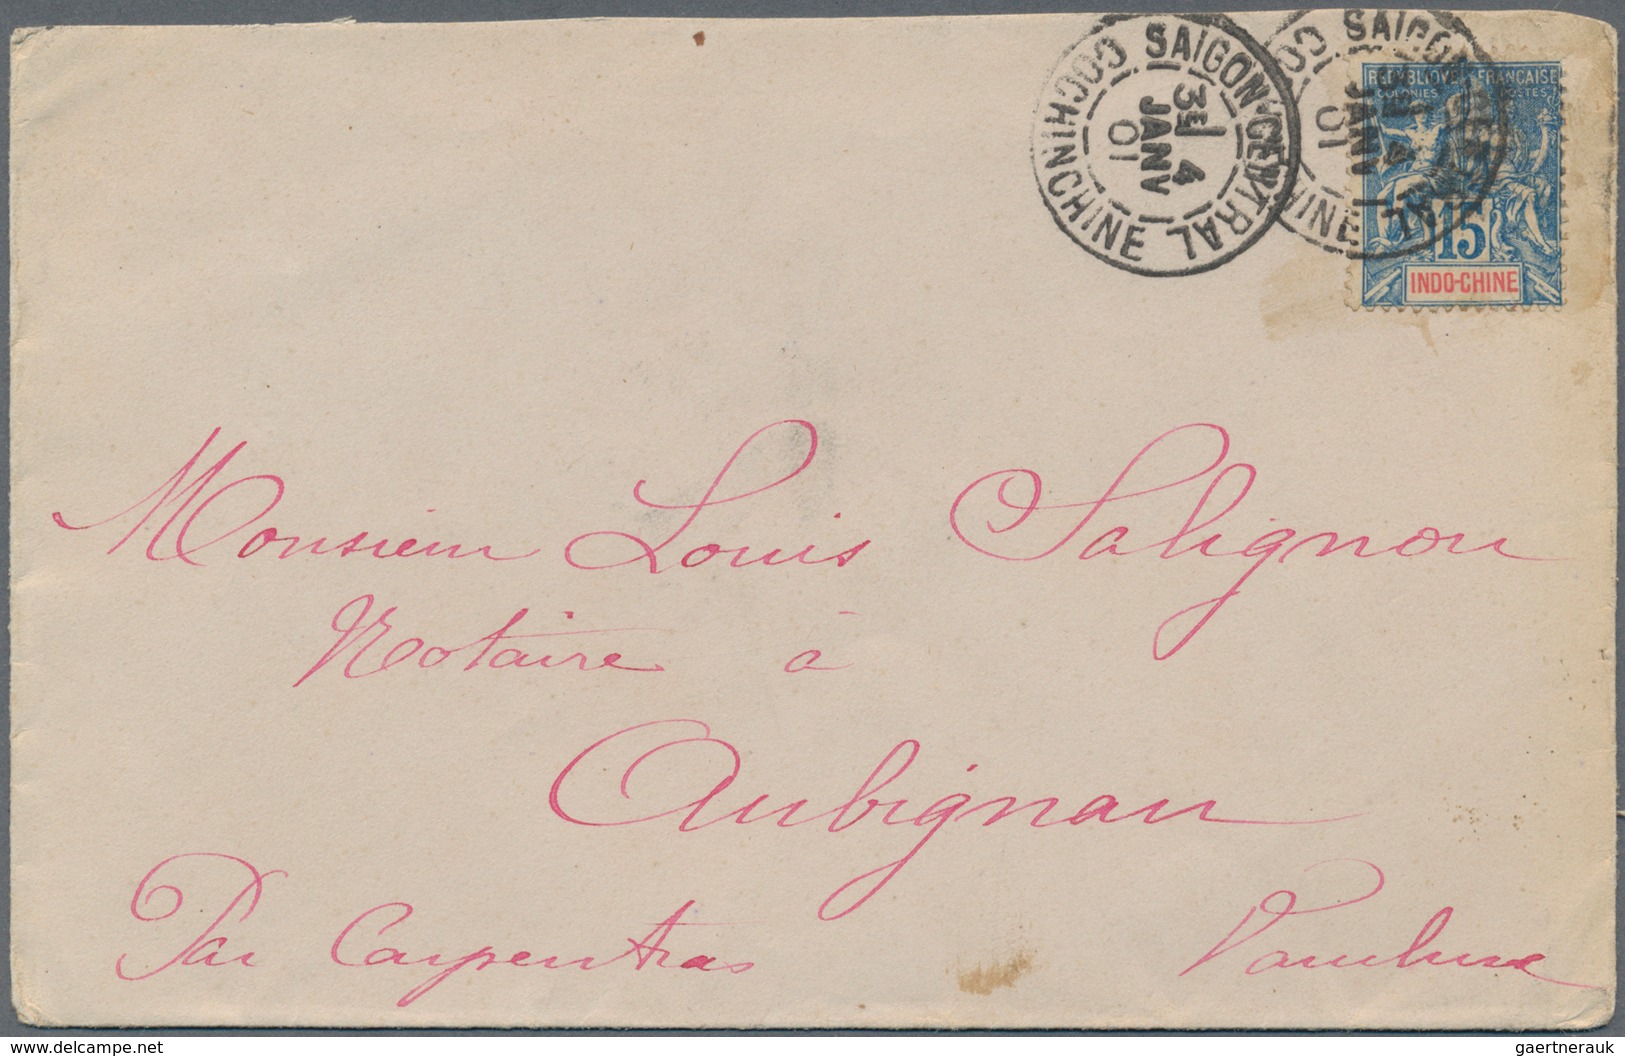 SAIGON-CENTRAL
3E 4
JANV
01
COCHINCHINE
SAIGON
3E 4
JANV
01
REPUBLIQUE FRANCAISE
COLONIES POSTES
15
INDO-CHINE
Monsieur Louis Salignon
Notaire à
Aubignan
Par Carpentras Vaucluse
www.delcampe.net
gaertnerauk